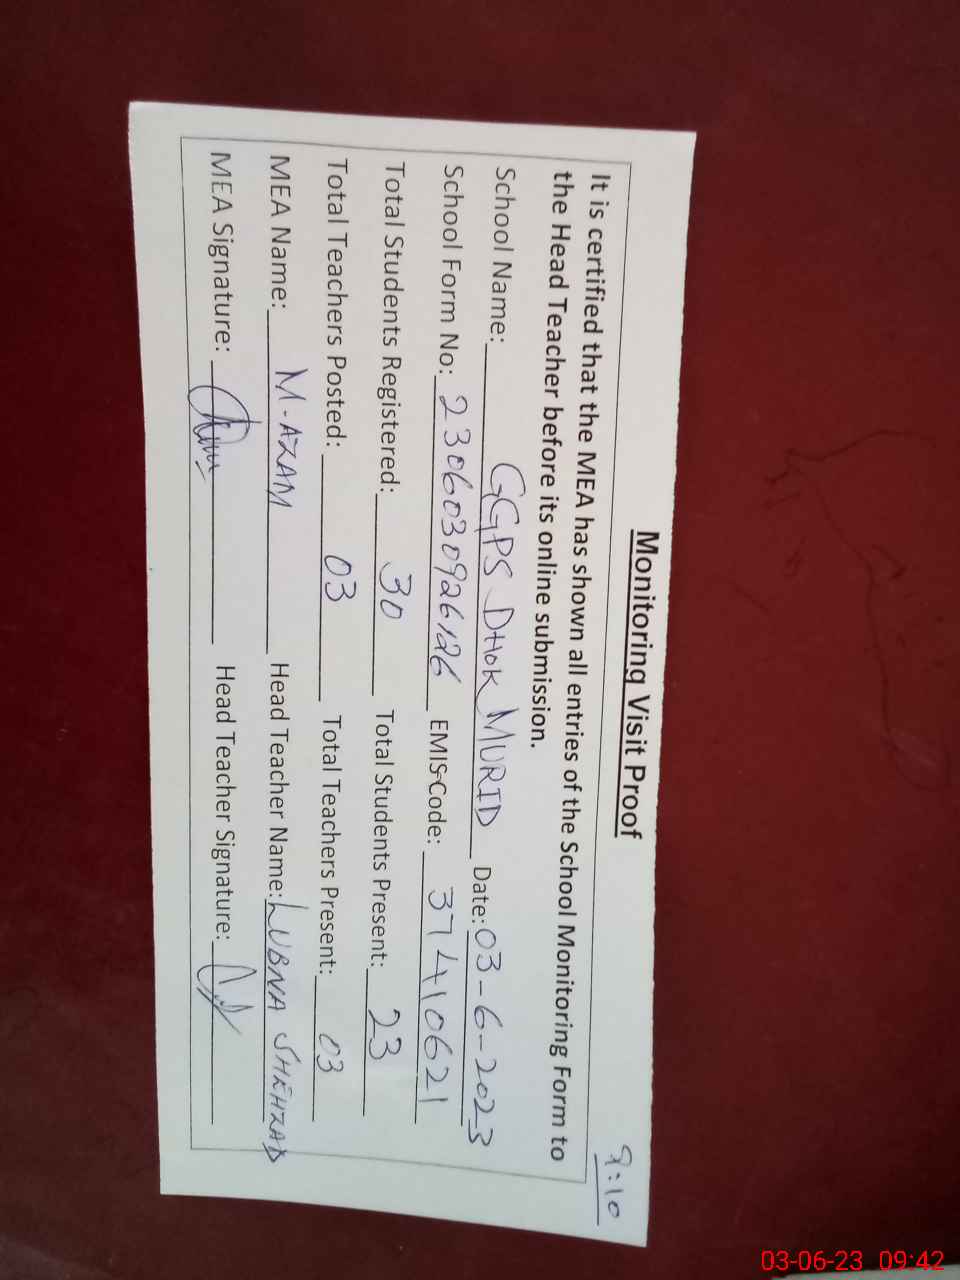 9:10
Monitoring Visit Proof
It is certified that the MEA has shown all entries of the School Monitoring Form to
the Head Teacher before its online submission.
School Name: GGPS DHOK MURID Date: 03-6-2023
School Form No: 2306030926126 EMIS Code: 37410621
Total Students Registered: 30 Total Students Present: 23
Total Teachers Posted: 03 Total Teachers Present: 03
MEA Name: M.AZAM Head Teacher Name: LUBNA SHEHZAD
MEA Signature: Head Teacher Signature:
03-06-23 09:42